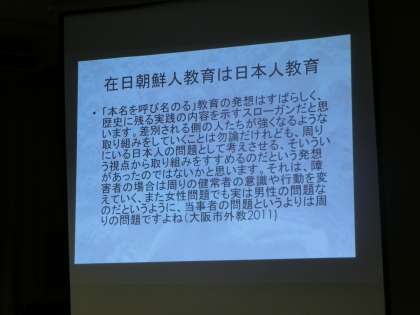 在日朝鮮人教育は日本人教育
• 「本名を呼び名のる」教育の発想はすばらしく、
歴史に残る実践の内容を示すスローガンだと思
います。差別される側の人たちが強くなるような
取り組みをしていくことは勿論だけれども、周り
にいる日本人の問題として考えさせる、そいうい
う視点から取り組みをすすめるのだという発想
があったのではないかと思います。それは、障
害者の場合は周りの健常者の意識や行動を変
えていく、また女性問題でも実は男性の問題な
のだというように、当事者の問題というよりは周
りの問題ですよね（大阪市外教2011）